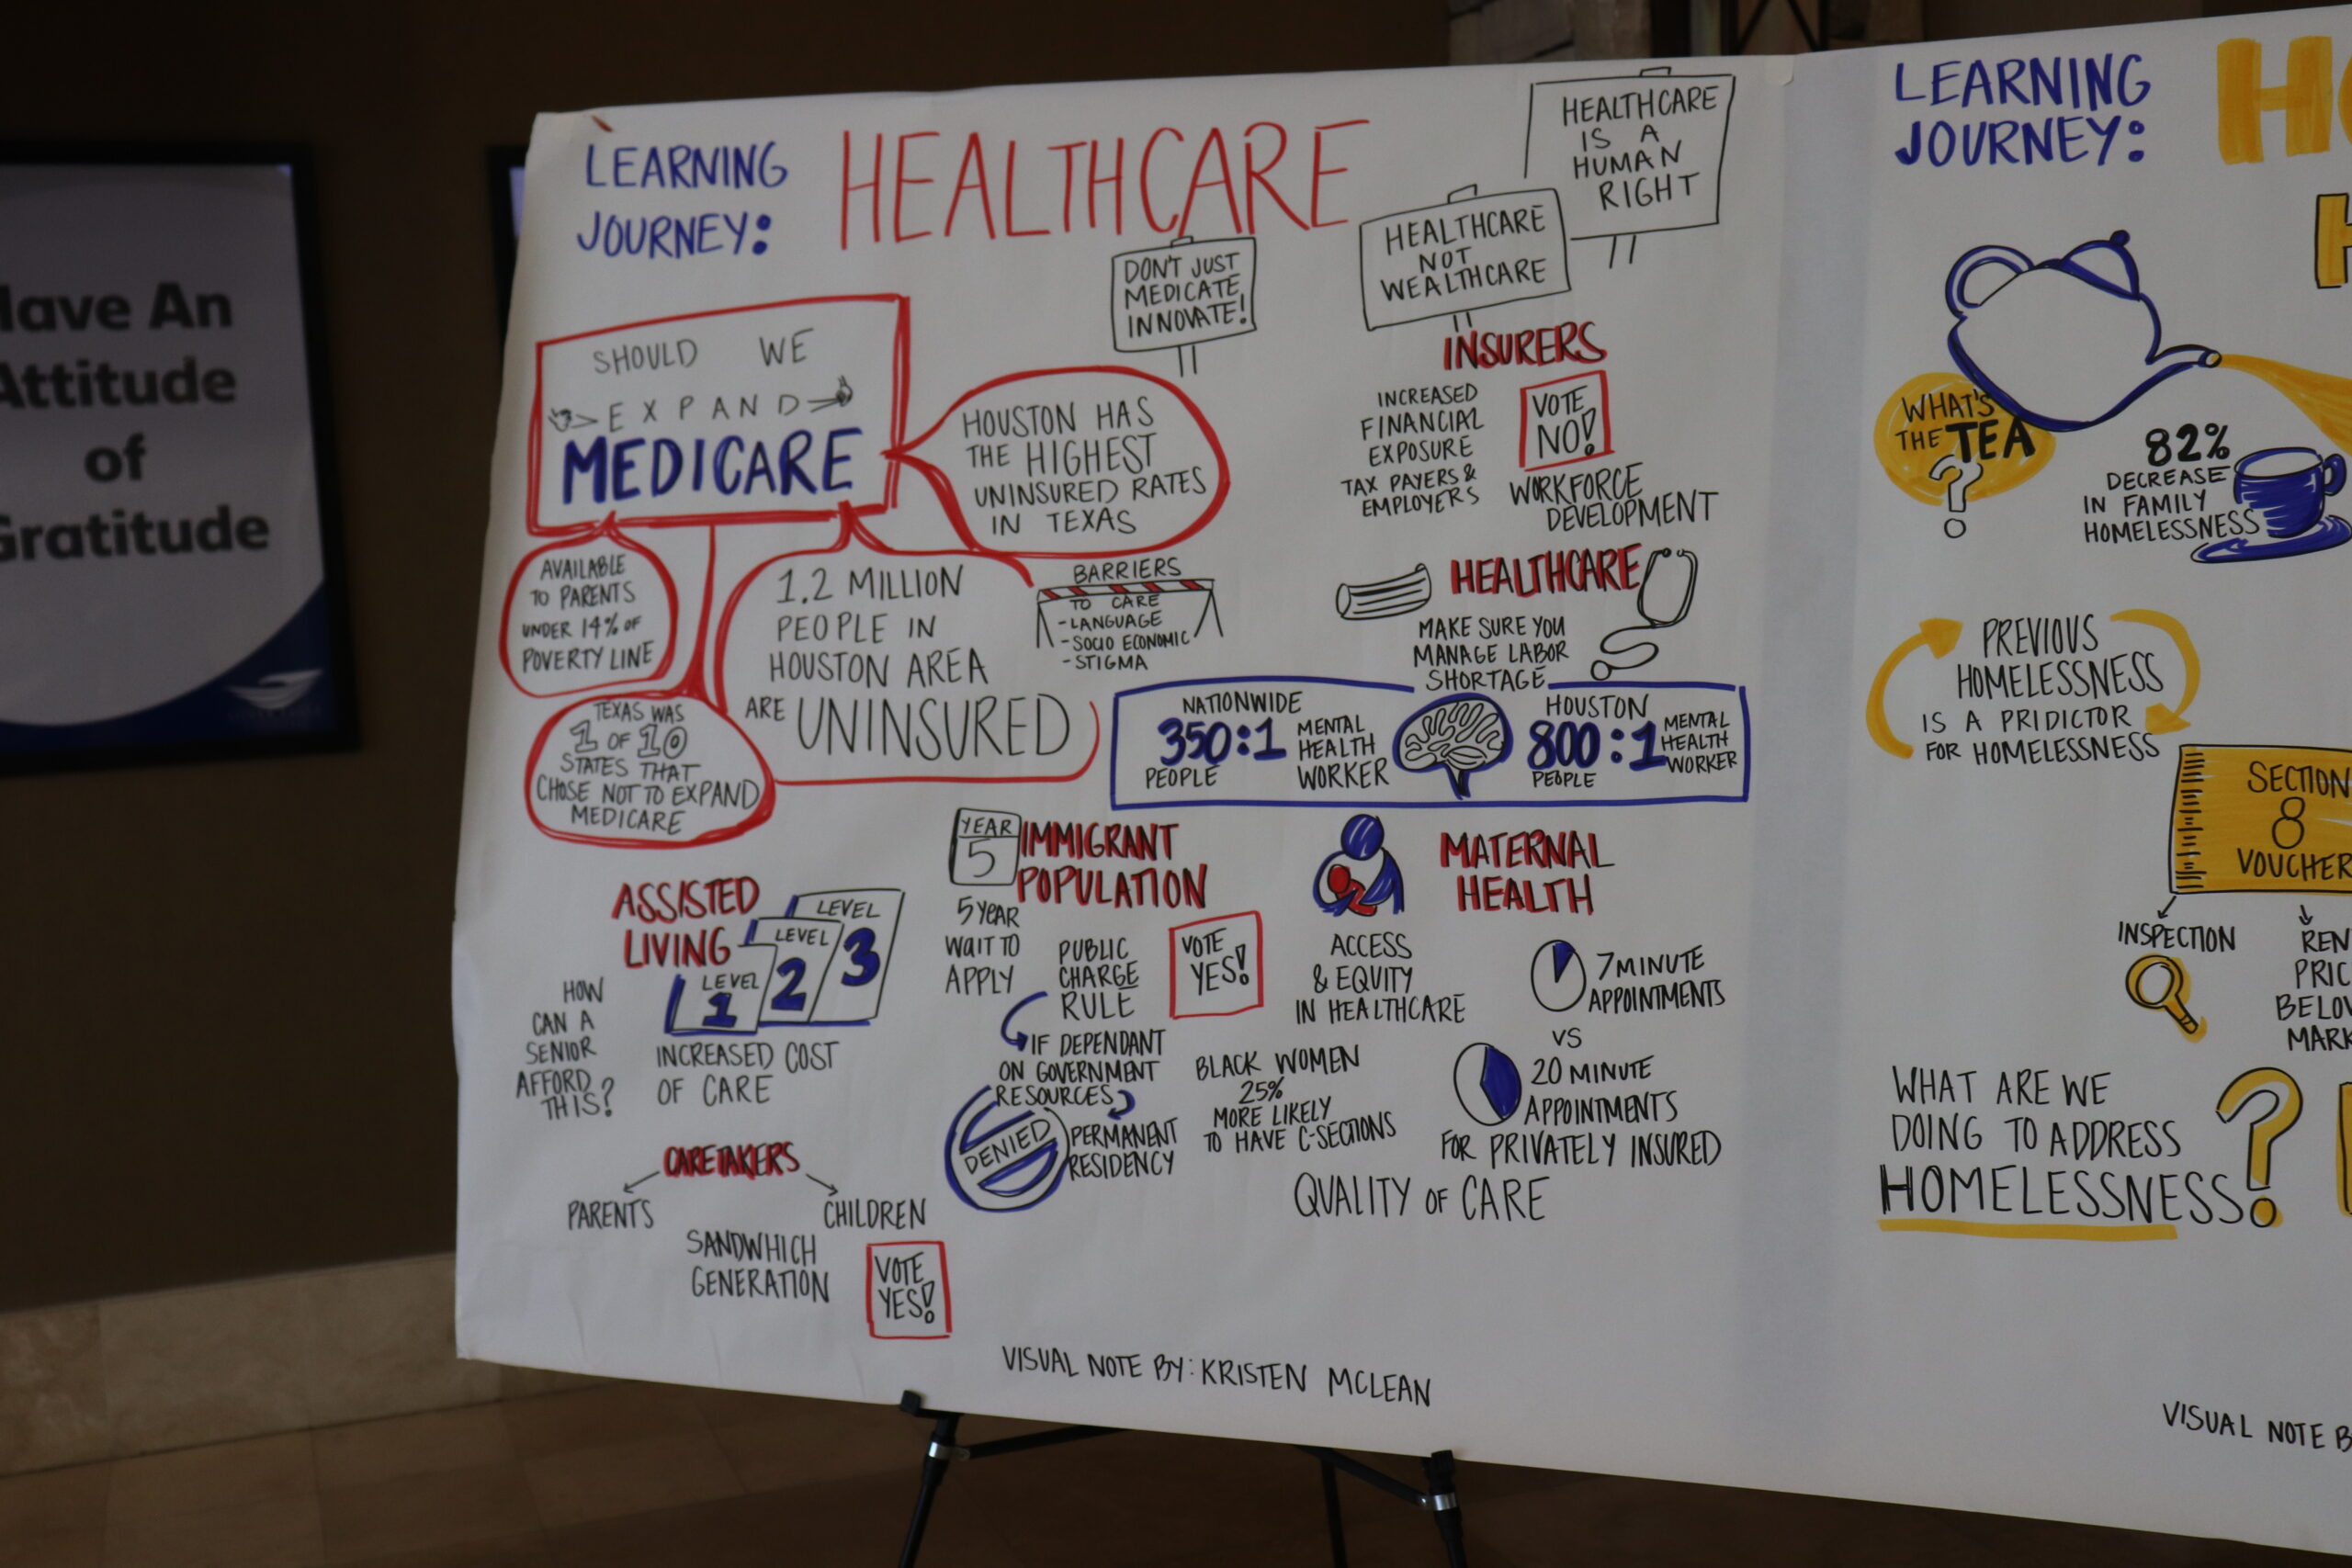 Have An
Attitude
of
Gratitude
LEARNING
JOURNEY:
HEALTHCARE
HEALTHCARE
IS A
HUMAN
RIGHT
HEALTHCARE
NOT
WEALTHCARE
DON'T JUST
MEDICATE
INNOVATE!
SHOULD WE
EXPAND
MEDICARE
HOUSTON HAS
THE HIGHEST
UNINSURED RATES
IN TEXAS
AVAILABLE
TO PARENTS
UNDER 14% OF
POVERTY LINE
1.2 MILLION
PEOPLE IN
HOUSTON AREA
ARE UNINSURED
TEXAS WAS
1 OF 10
STATES THAT
CHOSE NOT TO EXPAND
MEDICARE
BARRIERS
TO CARE
- LANGUAGE
- SOCIO ECONOMIC
- STIGMA
INSURERS
INCREASED
FINANCIAL
EXPOSURE
TAX PAYERS &
EMPLOYERS
VOTE
NO!
WORKFORCE
DEVELOPMENT
HEALTHCARE
MAKE SURE YOU
MANAGE LABOR
SHORTAGE
NATIONWIDE
350:1
PEOPLE
MENTAL
HEALTH
WORKER
HOUSTON
800:1
PEOPLE
MENTAL
HEALTH
WORKER
ASSISTED
LIVING
LEVEL
1
LEVEL
2
LEVEL
3
HOW
CAN A
SENIOR
AFFORD
THIS?
INCREASED COST
OF CARE
CARETAKERS
PARENTS
CHILDREN
SANDWHICH
GENERATION
VOTE
YES!
YEAR
5
IMMIGRANT
POPULATION
5 YEAR
WAIT TO
APPLY
PUBLIC
CHARGE
RULE
VOTE
YES!
IF DEPENDANT
ON GOVERNMENT
RESOURCES
DENIED
PERMANENT
RESIDENCY
MATERNAL
HEALTH
ACCESS
& EQUITY
IN HEALTHCARE
7 MINUTE
APPOINTMENTS
VS
20 MINUTE
APPOINTMENTS
FOR PRIVATELY INSURED
BLACK WOMEN
25%
MORE LIKELY
TO HAVE C-SECTIONS
QUALITY OF CARE
VISUAL NOTE BY: KRISTEN MCLEAN
LEARNING
JOURNEY:
HO
H
WHAT'S
THE TEA
?
82%
DECREASE
IN FAMILY
HOMELESSNESS
PREVIOUS
HOMELESSNESS
IS A PRIDICTOR
FOR HOMELESSNESS
SECTION
8
VOUCHER
INSPECTION
REN
PRIC
BELOW
MARK
WHAT ARE WE
DOING TO ADDRESS
HOMELESSNESS?
VISUAL NOTE B